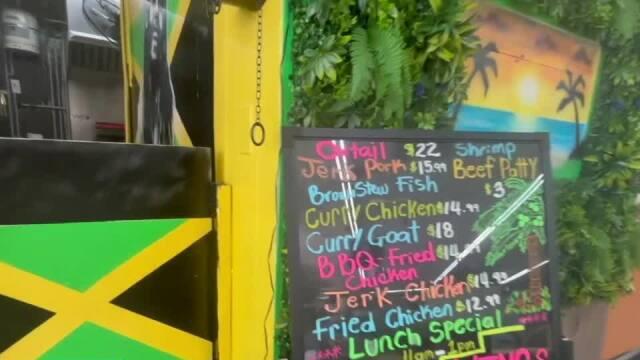 Oxtail $22 Shrimp
Jerk Pork $15.99 Beef Patty
Brown Stew Fish $3
Curry Chicken $14.99
Curry Goat $18
BBQ-Fried $14.99
Chicken
Jerk Chicken $14.99
Fried Chicken $12.99
Lunch Special
11am - 1pm